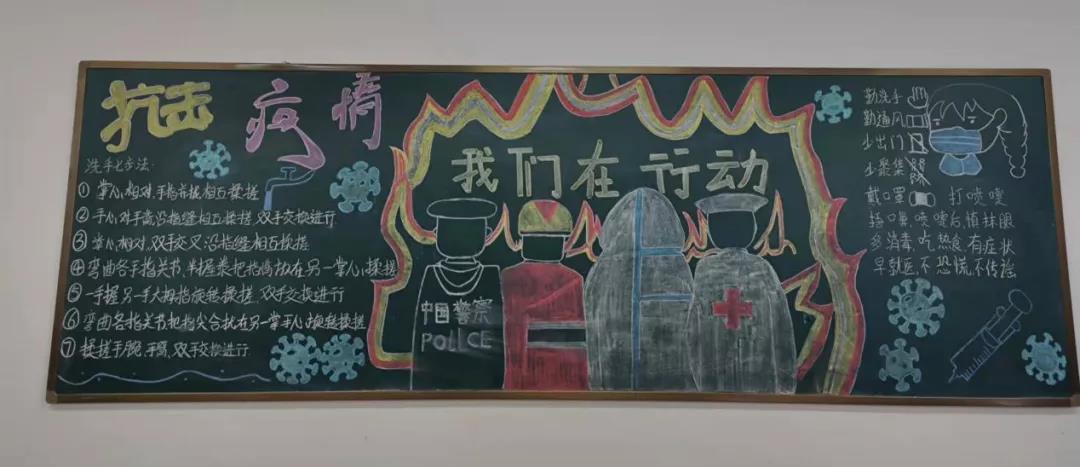 抗击疫情
洗手七步法:
① 掌心相对,手指并拢相互揉搓
② 手心对手背沿指缝相互揉搓,双手交换进行
③ 掌心相对,双手交叉沿指缝相互揉搓
④ 弯曲各手指关节,半握拳把指背放在另一掌心揉搓
⑤ 一手握另一手大拇指旋转揉搓,双手交换进行
⑥ 弯曲各指关节把指尖合拢在另一掌手心旋转揉搓
⑦ 揉搓手腕,手臂,双手交换进行
我们在行动
中国警察
POLICE
勤洗手
勤通风
少出门
少聚集
戴口罩 打喷嚏
捂口鼻,喷嚏后,慎抹眼
多消毒,吃熟食,有症状
早就医,不恐慌,不传谣